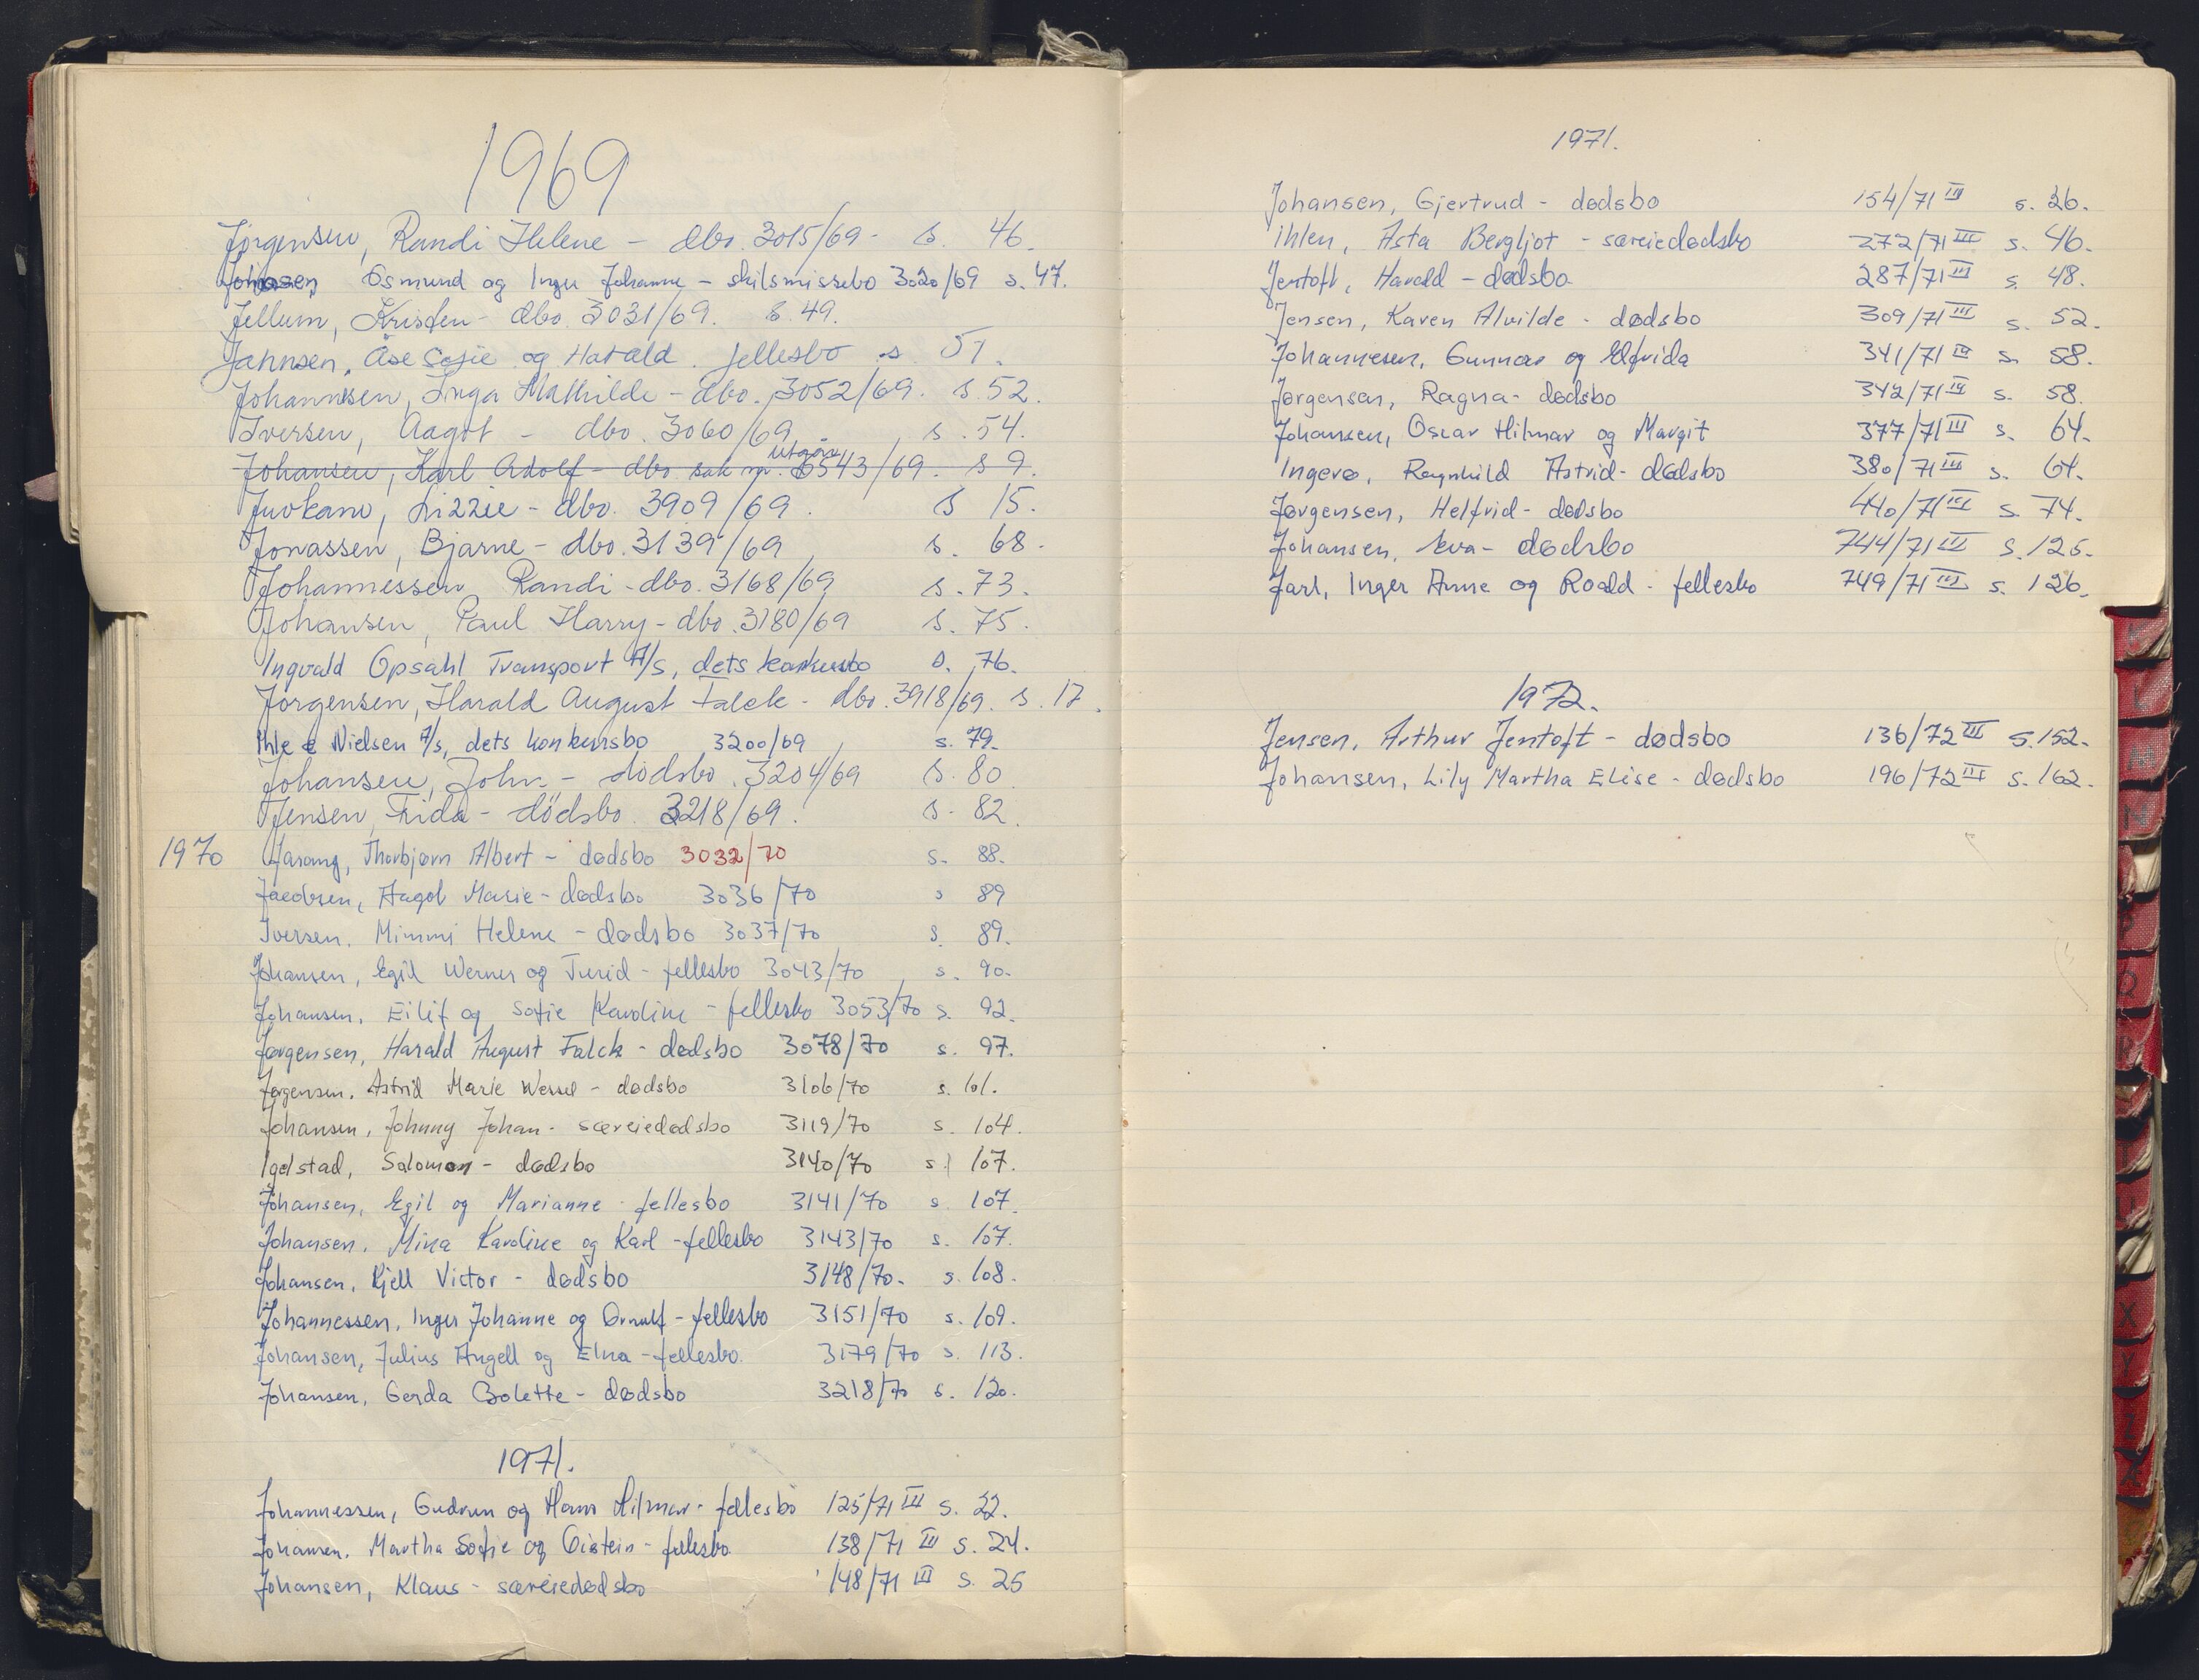 1969
Jørgensen, Randi Helene - dbo. 3015/69 - s. 46.
Johnsen, Osmund og Inger Johanne - skilsmissebo 3020/69 s. 47.
Jellum, Kristen - dbo. 3031/69. s. 49.
Jahnsen, Åse Sofie og Harald. fellesbo s. 51.
Johannesen, Inga Mathilde - dbo. 3052/69. s. 52.
Iversen, Aagot - dbo. 3060/69, s. 54.
Utgår
Johansen, Karl Adolf - dbo sak nr. 6543/69. s 9.
Juvkam, Lizzie - dbo. 3909/69. s 15.
Jonassen, Bjarne - dbo. 3139/69 s. 68.
Johannessen Randi - dbo. 3168/69 s. 73.
Johansen, Paul Harry - dbo. 3180/69 s. 75.
Ingvald Opsahl Transport A/S, dets konkursbo s. 76.
Jørgensen, Harald August Falck - dbo. 3918/69. s. 17.
Ihle & Nielsen A/s, dets konkursbo 3200/69, s. 79.
Johansen, John - dødsbo. 3204/69 s. 80
Jensen, Frida - dödsbo. 3218/69. s. 82.
1970 Jarang, Thorbjørn Albert - dødsbo 3032/70 s. 88.
Jacobsen, Aagot Marie - dødsbo 3036/70 s 89
Iversen, Mimmi Helene - dødsbo 3037/70 s. 89.
Johansen, Egil Werner og Turid - fellesbo 3043/70, s. 90.
Johansen, Eilif og Sofie Karoline - fellesbo 3053/70 s. 92.
Jørgensen, Harald August Falck - dødsbo 3078/70 s. 97.
Jørgensen, Astrid Marie Wessel - dødsbo 3106/70 s. 101.
Johansen, Johnny Johan - særeiedødsbo 3119/70 s. 104.
Igelstad, Salomon - dødsbo 3140/70 s. 107.
Johansen, Egil og Marianne - fellesbo 3141/70 s. 107.
Johansen, Mina Karoline og Karl - fellesbo 3143/70 s. 107.
Johansen, Kjell Victor - dødsbo 3148/70. s. 108.
Johannessen, Inger Johanne og Ornulf - fellesbo 3151/70 s. 109.
Johansen, Julius Angell og Elna - fellesbo. 3179/70 s. 113.
Johansen, Gerda Bolette - dødsbo 3218/70 s. 120.
1971.
Johannessen, Gudrun og Hans Hilmar - fellesbo 125/71 III s. 22.
Johansen, Martha Sofie og Oistein - fellesbo 138/71 III s. 24.
Johansen, Klaus - særeiedødsbo 148/71 III s. 25
1971.
Johansen, Gjertrud - dødsbo 154/71 III s. 26.
Ihlen, Asta Bergljot - særeiedødsbo 272/71 III s. 46.
Jentoft, Harald - dødsbo 287/71 III s. 48.
Jensen, Karen Alvilde - dødsbo 309/71 III s. 52.
Johannesen, Gunnar og Elfrida 341/71 III s. 58.
Jørgensen, Ragna - dødsbo 342/71 III s. 58.
Johansen, Oscar Hilmar og Margit 377/71 III s. 64.
Ingerø, Ragnhild Astrid - dødsbo 380/71 III s. 64.
Jørgensen, Helfrid - dødsbo 440/71 III s. 74.
Johansen, Eva - dødsbo 744/71 III s. 125.
Jarl, Inger Anne og Roald - fellesbo 749/71 III s. 126.
1972.
Jensen, Arthur Jentoft - dødsbo 136/72 III s. 152.
Johansen, Lily Martha Elise - dødsbo 196/72 III s. 162.
K
L
M
N
P
Q
R
T
U
X
Y
Z